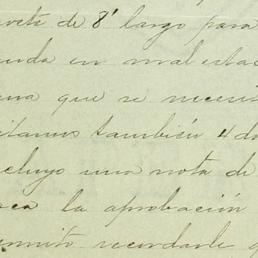 vete de 8' largo para
nda en mal estac
ena que se necesi
itamos también 4 do
cluyo una nota de
rca la aprobación
ermito recordarle q